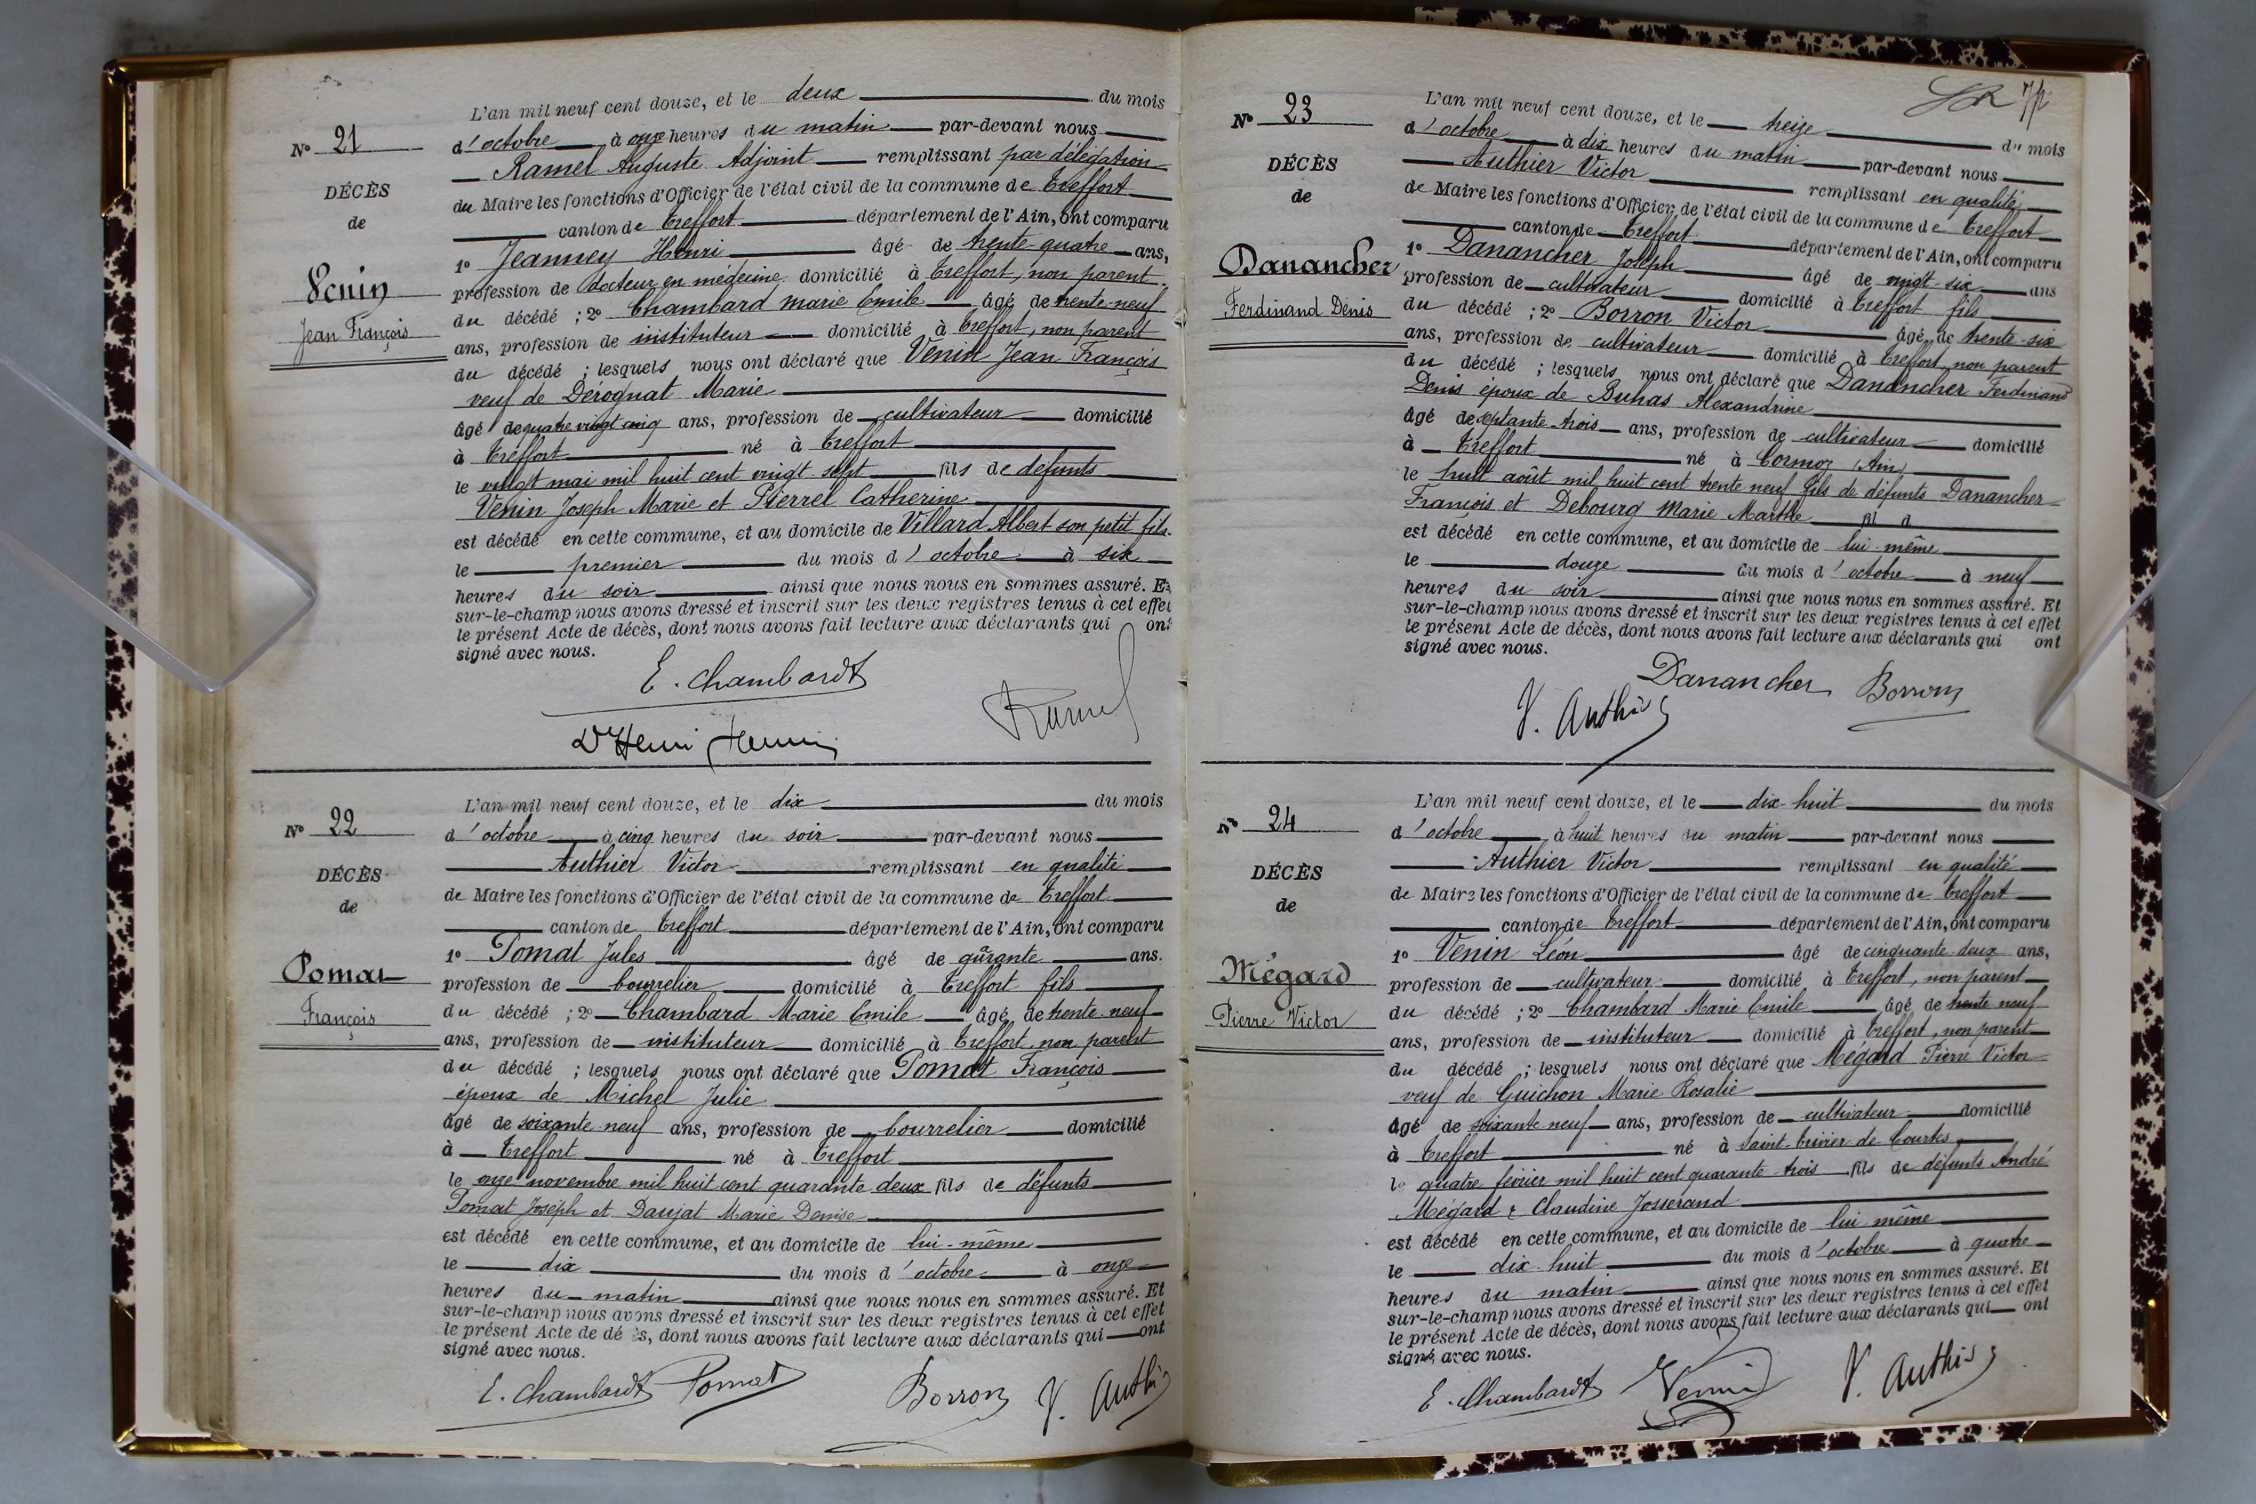 L'an mil neuf cent douze, et le deux du mois
N° 21
d'octobre à onze heures du matin par-devant nous
Ramel Auguste Adjoint remplissant par délégation
DÉCÈS
du Maire les fonctions d'Officier de l'état civil de la commune de Treffort
de
canton de Treffort département de l'Ain, ont comparu
1° Jeanney Henri âgé de trente-quatre ans,
Venin
profession de docteur en médecine domicilié à Treffort, non parent
Jean François
du décédé ; 2° Chambard Marie Emile âgé de trente-neuf
ans, profession de instituteur domicilié à Treffort, non parent
du décédé ; lesquels nous ont déclaré que Venin Jean François
veuf de Dérognat Marie
âgé de quatre vingt cinq ans, profession de cultivateur domicilié
à Treffort né à Treffort
le vingt mai mil huit cent vingt sept fils de défunts
Venin Joseph Marie et Pierrel Catherine
est décédé en cette commune, et au domicile de Villard Albert son petit fils.
le premier du mois d'octobre à six
heures du soir ainsi que nous nous en sommes assuré. Et
sur-le-champ nous avons dressé et inscrit sur les deux registres tenus à cet effet
le présent Acte de décès, dont nous avons fait lecture aux déclarants qui ont
signé avec nous.
E. Chambardt
Ramel
Dr Henri
L'an mil neuf cent douze, et le dix du mois
N° 22
d'octobre à cinq heures du soir par-devant nous
Authier Victor remplissant en qualité
DÉCÈS
de Maire les fonctions d'Officier de l'état civil de la commune de Treffort
de
canton de Treffort département de l'Ain, ont comparu
1° Pomat Jules âgé de quarante ans.
Pomat
profession de bourrelier domicilié à Treffort fils
François
du décédé ; 2° Chambard Marie Emile âgé de trente-neuf
ans, profession de instituteur domicilié à Treffort, non parent
du décédé ; lesquels nous ont déclaré que Pomat François
époux de Michel Julie
âgé de soixante-neuf ans, profession de bourrelier domicilié
à Treffort né à Treffort
le onze novembre mil huit cent quarante deux fils de défunts
Pomat Joseph et Daujat Marie Denise
est décédé en cette commune, et au domicile de lui-même
le dix du mois d'octobre à onze
heures du matin ainsi que nous nous en sommes assuré. Et
sur-le-champ nous avons dressé et inscrit sur les deux registres tenus à cet effet
le présent Acte de décès, dont nous avons fait lecture aux déclarants qui ont
signé avec nous.
E. Chambardt Pomat Borron V. Authier
72
L'an mil neuf cent douze, et le treize du mois
N° 23
d'octobre à dix heures du matin par-devant nous
Authier Victor remplissant en qualité
DÉCÈS
de Maire les fonctions d'Officier de l'état civil de la commune de Treffort
de
canton de Treffort département de l'Ain, ont comparu
1° Danancher Joseph âgé de vingt-six ans
Danancher
profession de cultivateur domicilié à Treffort fils
Ferdinand Denis
du décédé ; 2° Borron Victor âgé de trente-six
ans, profession de cultivateur domicilié à Treffort, non parent
du décédé ; lesquels nous ont déclaré que Danancher Ferdinand
Denis époux de Buhas Alexandrine
âgé de septante-trois ans, profession de cultivateur domicilié
à Treffort né à Cormoz (Ain)
le huit août mil huit cent trente neuf fils de défunts Danancher
François et Debourg Marie Marthe fil d
est décédé en cette commune, et au domicile de lui-même
le douze du mois d'octobre à neuf
heures du soir ainsi que nous nous en sommes assuré. Et
sur-le-champ nous avons dressé et inscrit sur les deux registres tenus à cet effet
le présent Acte de décès, dont nous avons fait lecture aux déclarants qui ont
signé avec nous.
Danancher Borron
V. Authier
L'an mil neuf cent douze, et le dix-huit du mois
N° 24
d'octobre à huit heures du matin par-devant nous
Authier Victor remplissant en qualité
DÉCÈS
de Maire les fonctions d'Officier de l'état civil de la commune de Treffort
de
canton de Treffort département de l'Ain, ont comparu
1° Venin Léon âgé de cinquante deux ans,
Mégard
profession de cultivateur domicilié à Treffort, non parent
Pierre Victor
du décédé ; 2° Chambard Marie Emile âgé de trente neuf
ans, profession de instituteur domicilié à Treffort, non parent
du décédé ; lesquels nous ont déclaré que Mégard Pierre Victor
veuf de Guichon Marie Rosalie
âgé de soixante neuf ans, profession de cultivateur domicilié
à Treffort né à Saint-Trivier-de-Courtes
le quatre février mil huit cent quarante-trois fils de défunts André
Mégard & Claudine Josserand
est décédé en cette commune, et au domicile de lui même
le dix huit du mois d'octobre à quatre
heures du matin ainsi que nous nous en sommes assuré. Et
sur-le-champ nous avons dressé et inscrit sur les deux registres tenus à cet effet
le présent Acte de décès, dont nous avons fait lecture aux déclarants qui ont
signé avec nous.
E. Chambardt Venin V. Authier